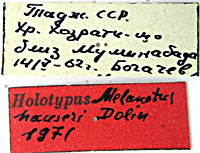 Тадж. ССР.
Хр. Хозрати-шо
близ Муминабада
14/V-62г. Богачев
Holotypus Melanotus
hauseri Dolin
1971